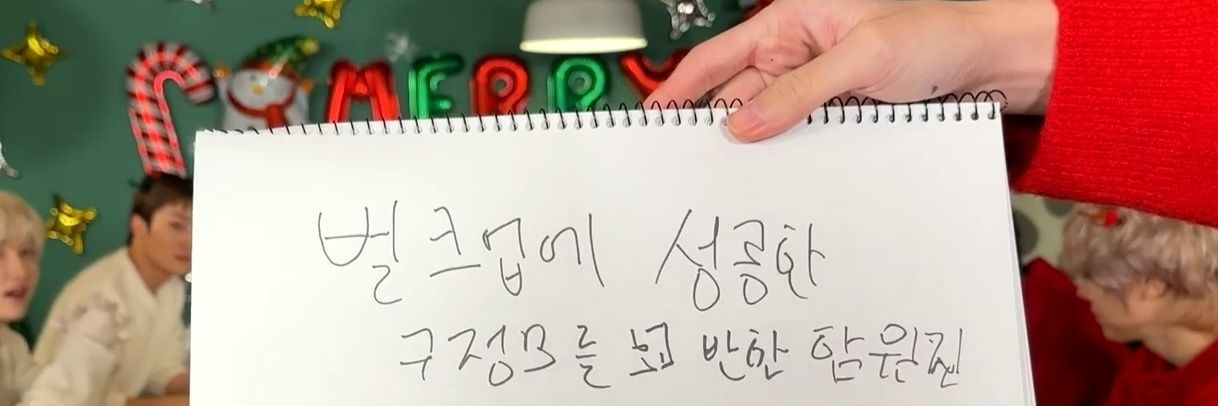 MERRY
벌크업에 성공한
구정모를 보고 반한 함원진